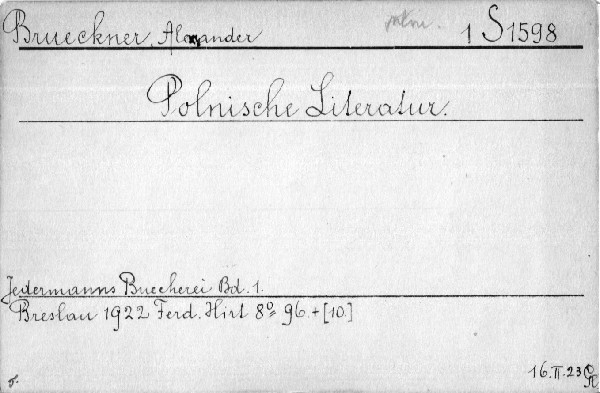 Brueckner, Alexander 1 S 1598
Polnische Literatur.
Jedermanns Buecherei Bd. 1.
Breslau 1922 Ferd. Hirt 8° 96.+[10.]
16.II.23